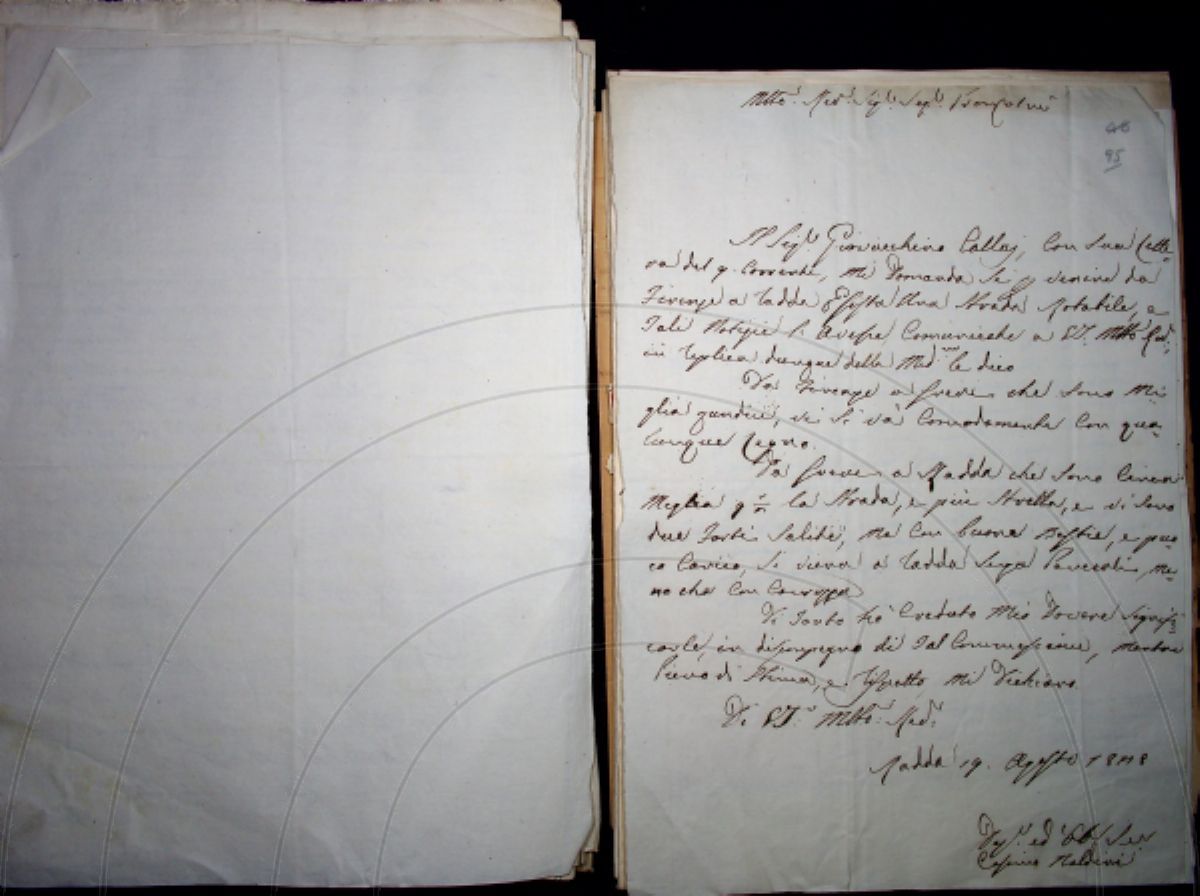 Ill.mo
48
95
Il Sig.r Giovacchino Callaj, con sua lette-
ra del 9. Corrente, mi Domanda se p venire da
Firenze a Radda Esista Una Strada Rotabile, e
Tali Notizie l'avesse Comunicate a
in replica dunque della Med.ma le dico
Da Firenze a Greve che sono Mi-
glia quindici, vi si và Comodamente Con qua-
lunque Legno.
Da Greve a Radda che sono Circa
Miglia la Strada, e più Stretta, e vi sono
due Forti Salite, ma con buone Bestie, e po-
co Carico, si viene a Radda senza Pericoli, me-
no che con Carrozza
Di Tanto hò Creduto Mio Dovere Signifi-
carle, in disimpegno di Tal Commissione, mentre
Pieno di Stima, e rispetto Mi Dichiaro
Di
Radda 19. Agosto
ed